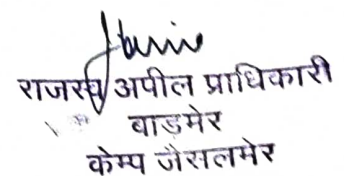 राजस्व अपील प्राधिकारी
बाड़मेर
केम्प जैसलमेर